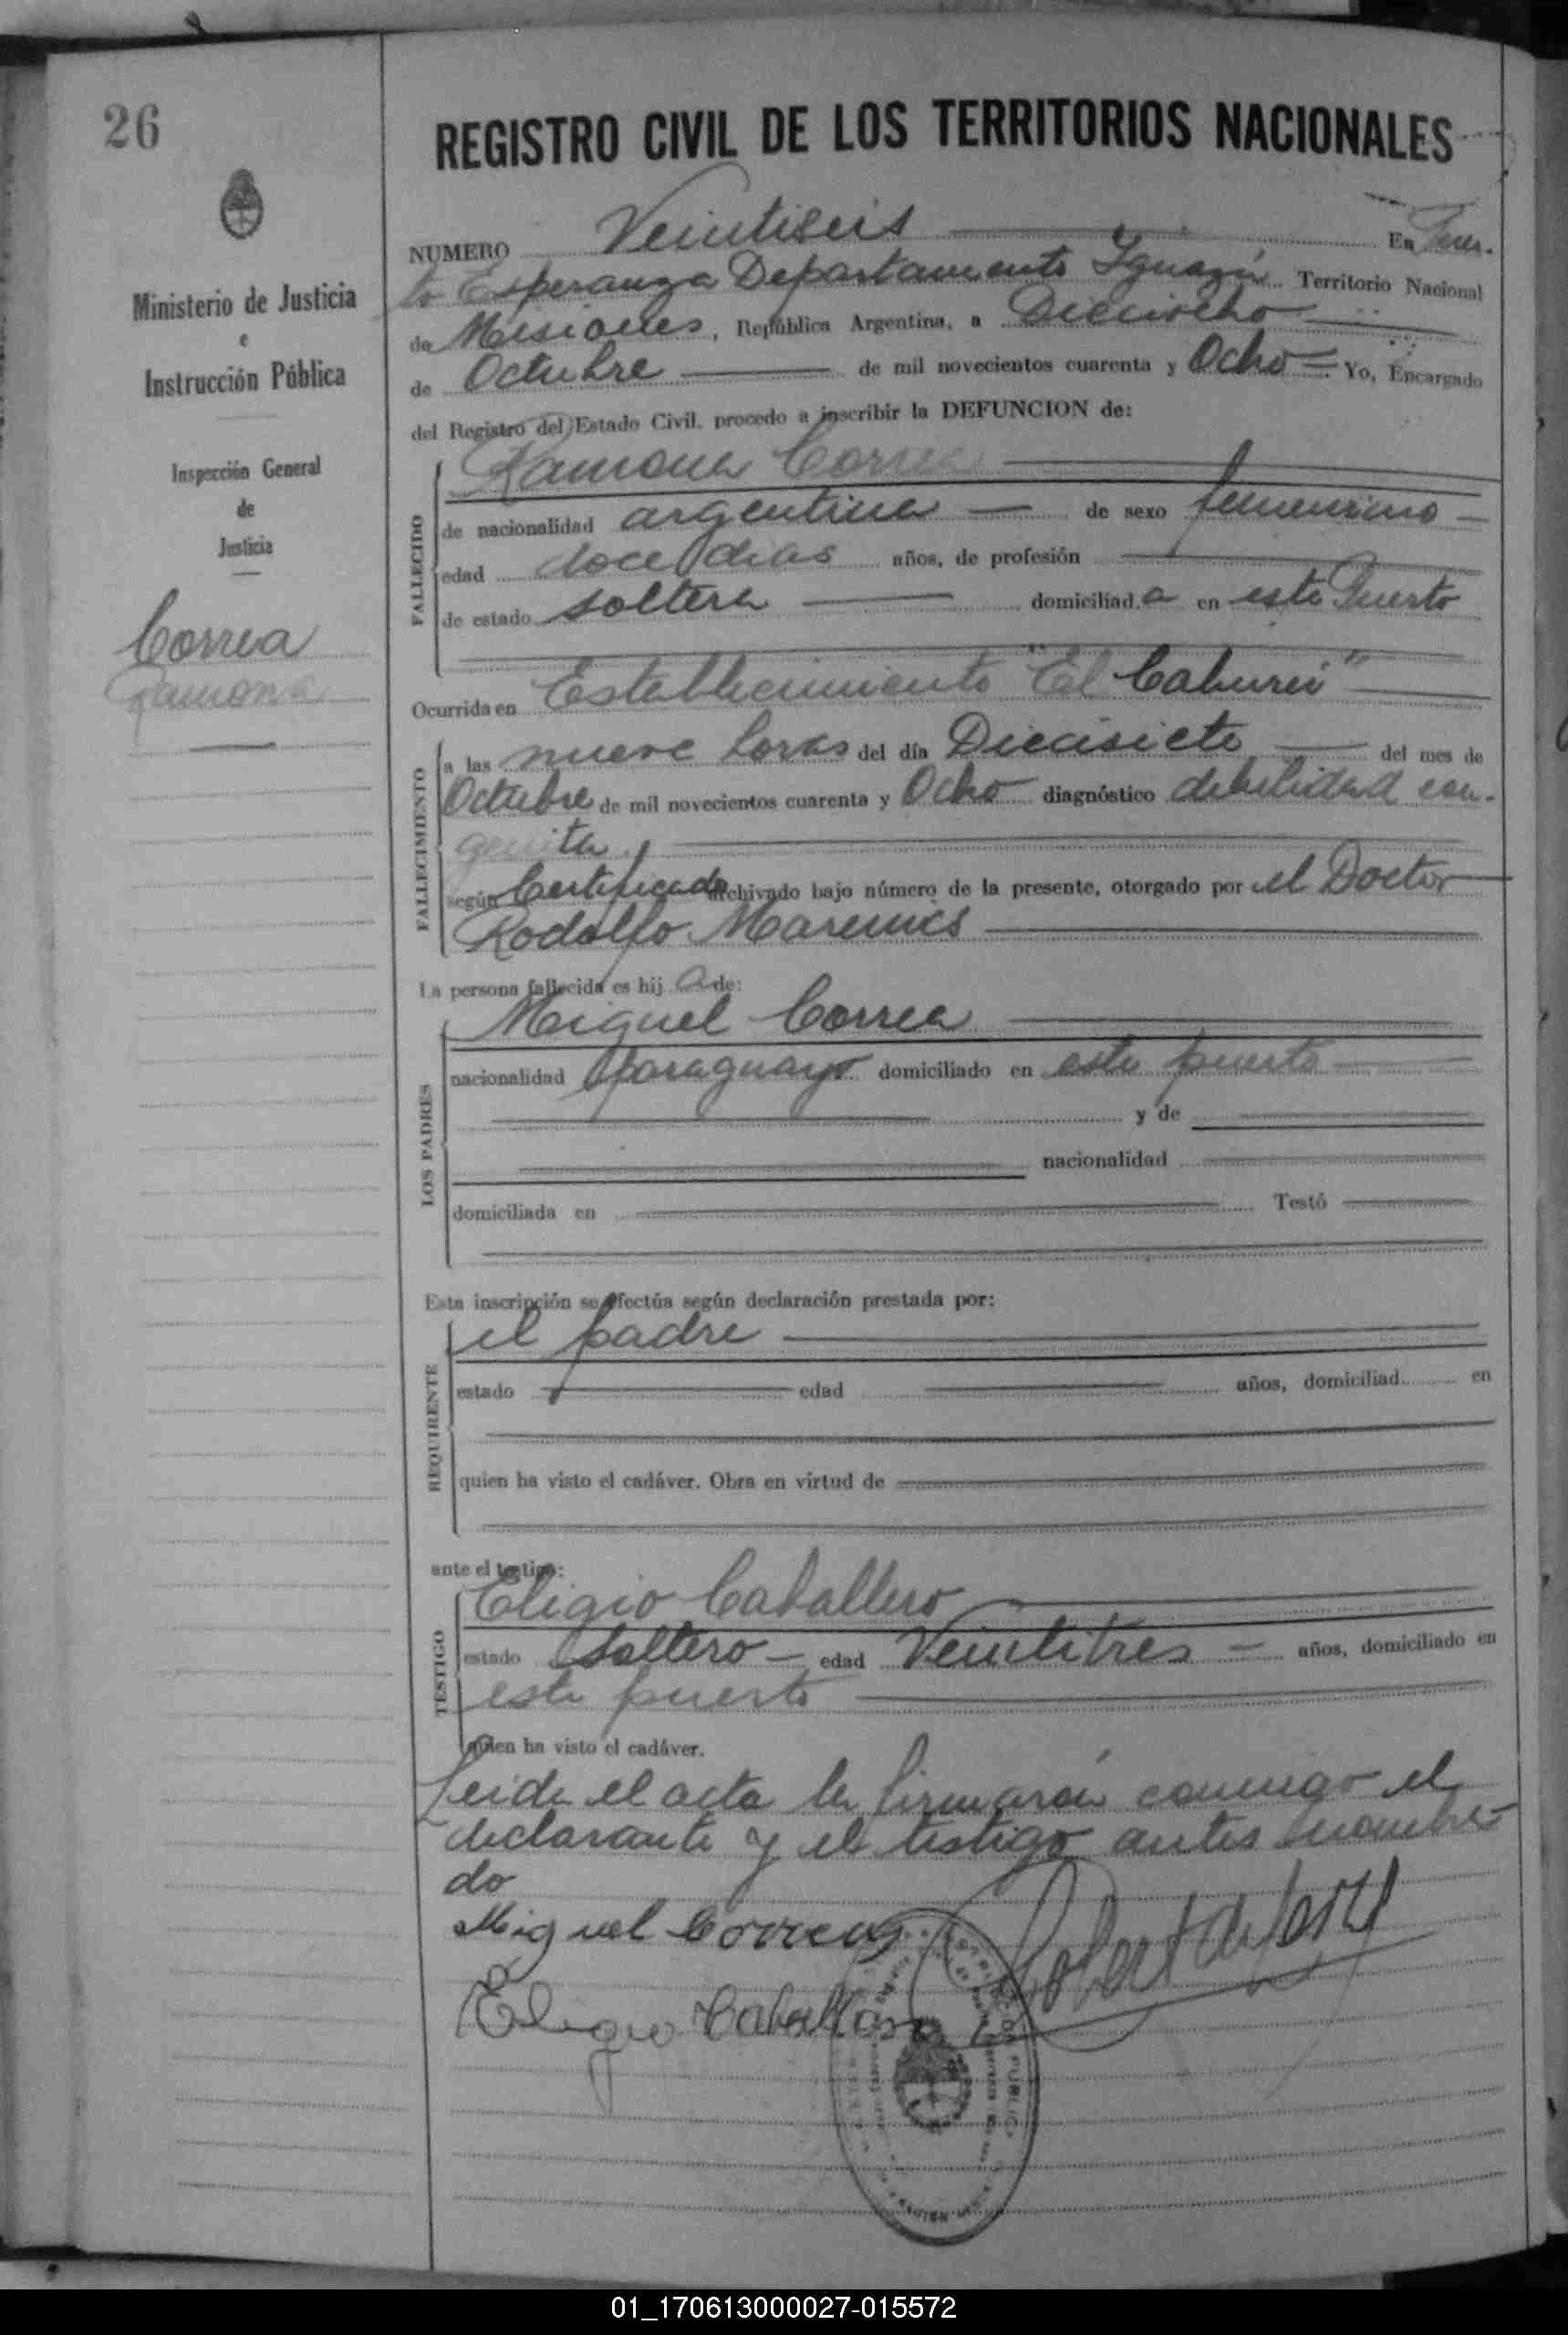 26
Ministerio de Justicia
e
Instrucción Pública
Inspección General
de
Justicia
Correa
Ramona
REGISTRO CIVIL DE LOS TERRITORIOS NACIONALES
NUMERO Veintiseis En Puer-
to Esperanza Departamento Iguazú Territorio Nacional
de Misiones, República Argentina, a Dieciocho
de Octubre de mil novecientos cuarenta y Ocho Yo, Encargado
del Registro del Estado Civil, procedo a inscribir la DEFUNCION de:
FALLECIDO
Ramona Correa
de nacionalidad argentina de sexo femenino
edad doce dias años, de profesión
de estado soltera domiciliad a en este Puerto
Ocurrida en Establecimiento "El Caburei"
FALLECIMIENTO
a las nueve horas del día Diecisiete del mes de
Octubre de mil novecientos cuarenta y Ocho diagnóstico debilidad con-
genita
según Certificado archivado bajo número de la presente, otorgado por el Doctor
Rodolfo
La persona fallecida es hij a de:
LOS PADRES
Miguel Correa
nacionalidad paraguayo domiciliado en este puerto
y de
nacionalidad
domiciliada en Testó
Esta inscripción se efectúa según declaración prestada por:
REQUIRENTE
el padre
estado edad años, domiciliad en
quien ha visto el cadáver. Obra en virtud de
ante el testigo:
TESTIGO
Eligio Caballero
estado Soltero edad Veintitres años, domiciliado en
este puerto
quien ha visto el cadáver.
Leida el acta la firmarón conmigo el
declarante y el testigo antes nombra-
do
Miguel Correa
Eligio Caballero
01_170613000027-015572